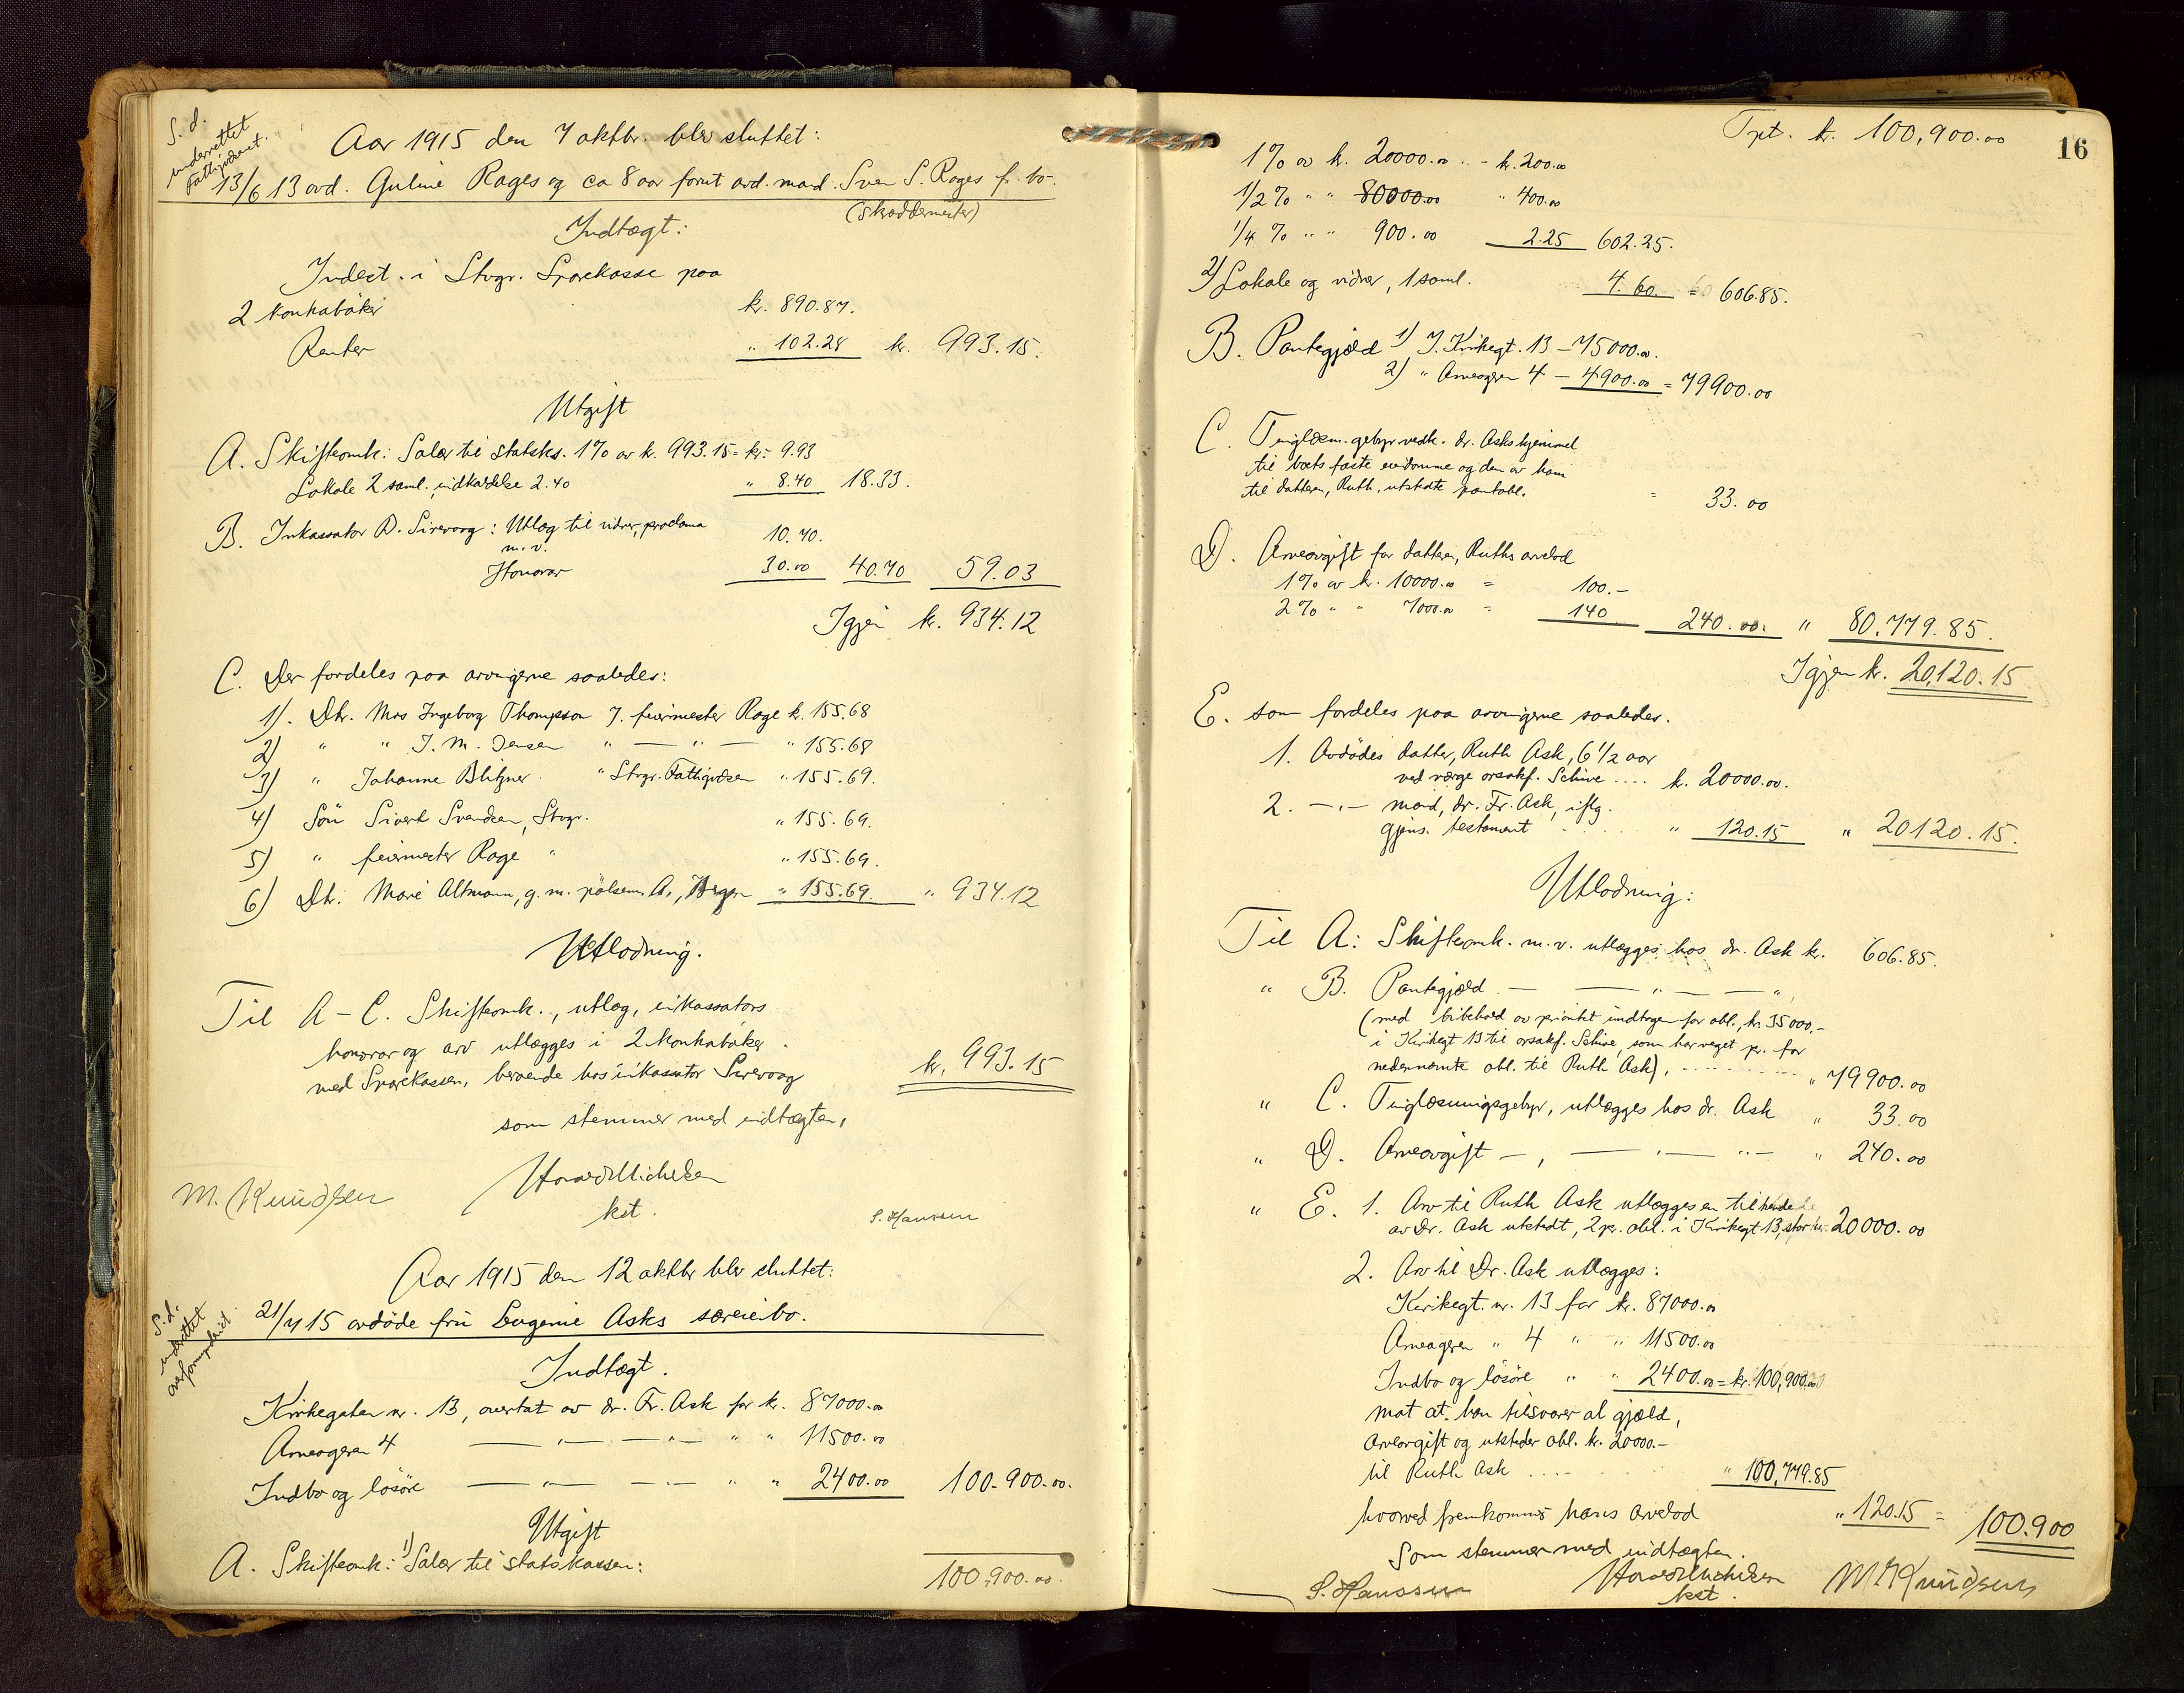 S. d.
underrettet
Fattigvæsenet.
Aar 1915 den 7 oktbr. blev sluttet:
13/6 13 avd. Guline Rages og ca 8 aar forut avd. mand. Sven S. Rages f. bo.
(Skræddermester)
Indtægt:
Indest. i Stvgr. Sparekasse paa
2 kontrabøker kr. 890.87.
Renter " 102.28 kr. 993.15.
Utgift
A. Skifteomk: Salær til statsks. 1% av kr. 993.15 = kr. 9.93
Lokale 2 saml. indkaldelse 2.40 " 8.40 18.33.
B. Inkassator D. Sirevaag: Utlæg til vidner, proclama 10.70.
m.v.
Honorar 30.00 40.70 59.03
Igjen kr. 934.12
C. Der fordeles paa arvingerne saaledes:
1). Dtr. Mrs Ingeborg Thompson f. feiermester Rage k. 155.68
2) " " J. M. Jensen " — " — " 155.68
3) " Johanne Blitzner " Stvgr. Fattigvæsen " 155.69.
4) Søn Sivert Svendsen, Stvgr. " 155.69.
5) " feiermester Rage " " 155.69.
6) Dtr. Marie Altmann, g. m. pølsem. A., Bergen " 155.69. " 934.12
Utlodning.
Til A – C. Skifteomk., utlæg, inkassators
honorar og arv utlægges i 2 kontrabøker
med Sparekassen, beroende hos inkassator Sirevaag kr. 993.15
som stemmer med indtægten,
M. Knudsen
kst.
S. Hanssen
Aar 1915 den 12 oktbr blev sluttet:
S. d.
underrettet
overformynderiet.
21/7 15 avdøde fru Eugenie Asks særeiebo.
Indtægt.
Kirkegaten nr. 13, overtat av dr. Fr. Ask for kr. 87000.00
Arneageren 4 — " — " — " " 11500.00
Indbo og løsøre — " — " — " " 2400.00 100.900.00.
Utgift
A. Skifteomk: 1) Salær til statskassen: 100.900.00.
16
Tpt. kr. 100,900.00
1% av kr. 20000.00 .. - kr. 200.00
1/2% " " 80000.00 " 400.00
1/4 % " " 900.00 2.25 602.25.
2) Lokale og vidner, 1 saml. 4.60 = 606.85.
B. Pantegjæld 1) I. Kirkegt. 13 – 75000.00.
2) " Arneageren 4 – 4900.00 = 79900.00
C. Tinglæsn. gebyr vedk. dr. Asks hjemmel
til boets faste eiendomme og den av ham
til datteren, Ruth, utstedte pantobl. = 33.00
D. Arveavgift for datteren, Ruths arvelod
1% av kr. 10000.00 = 100.–
2% " " 7000.00 = 140 240.00. " 80.779.85.
Igjen kr. 20,120.15
E. som fordeles paa arvingerne saaledes.
1. Avdødes datter, Ruth Ask, 6 1/2 aar
ved værge orsakf. Schive .... k. 20000.00.
2. — " — mand, dr. Fr. Ask, iflg.
gjens. testament " 120.15 " 20120.15.
Utlodning:
Til A: Skifteomk. m.v. utlægges hos dr. Ask kr. 606.85.
" B. Pantegjæld — — " — — "
(med bibehold av prioritet indtagen for obl., kr. 35000,–
i Kirkegt 13 til orsakf. Schive, som har veget pr. for
nedennævnte obl. til Ruth Ask), ......... " 79900.00
" C. Tinglæsningsgebyr, utlægges hos dr. Ask " 33.00
" D. Arveavgift — , — " — " — " 240.00
" E. 1. Arv til Ruth Ask utlægges en til hende
av Dr. Ask utstedt, 2 pr. obl. i Kirkegt 13, stor kr. 20000.00
2. Arv til Dr. Ask utlægges:
Kirkegt. nr. 13 for kr. 87000.00
Arneageren " 4 " " 11500.00
Indbo og løsøre " " 2400.00 = kr. 100,900.00
mot at han tilsvarer al gjæld,
arveavgift og utsteder obl. kr. 20000.–
til Ruth Ask .... " 100,779.85
hvorved fremkommer hans arvelod " 120.15 = 100.900
Som stemmer med indtægten.
S. Hanssen
kst.
M. Knudsen